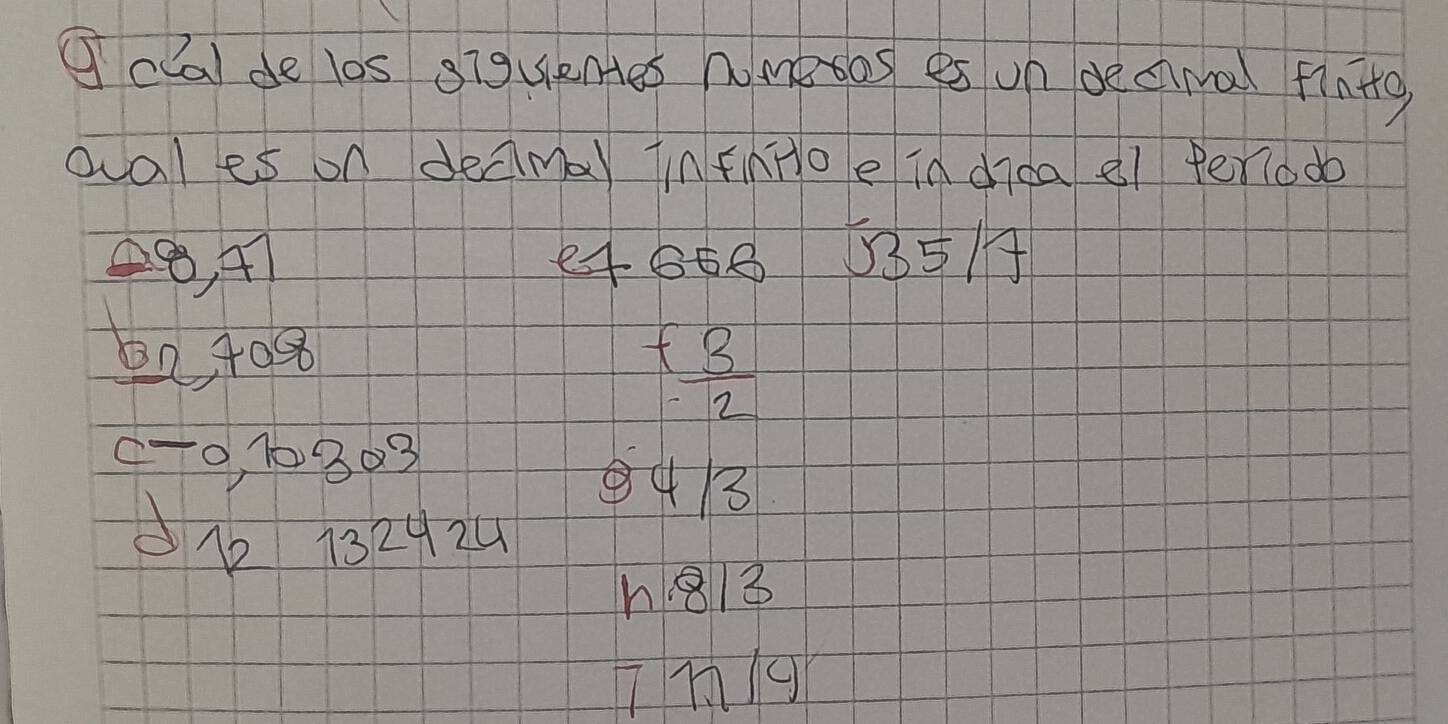 g cúal de los siguientes numeros es un decimal finito,
cual es un decimal infinito e indica el Periodo
a 8,47 e 7 666 J 35/7
b 2,708 f 3
- 2
c -0,10303 g 4/3
d 12 132424
h 8/3
i 11/9